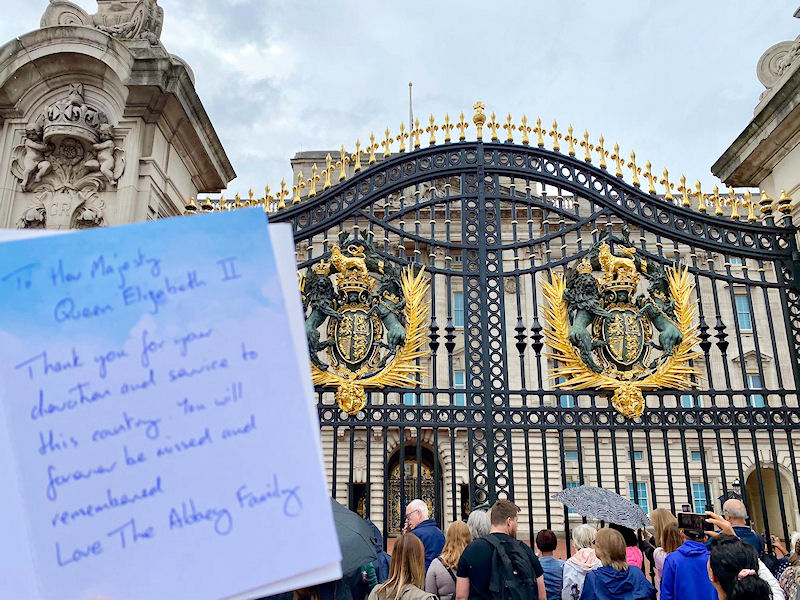 To Her Majesty
Queen Elizabeth II
Thank you for your
devotion and service to
this country. You will
forever be missed and
remembered
Love The Abbey Family